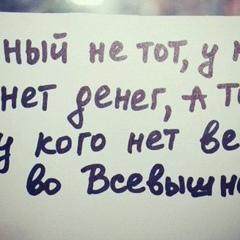 ный не тот, у к
нет денег, А то
у кого нет ве
во Всевышне